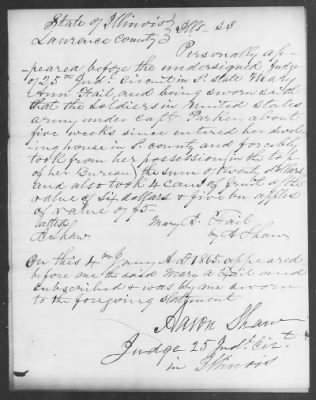 State of Illinois
Lawrence County SS
Personally ap-
peared before the undersigned Judge
of 25th Jud. Circuit in sd. state Mary
Ann Fail, and being sworn saith
that the soldiers in United states
army under Capt Parker, about
five weeks since entered her dwel
ing house in sd. county and forcibly
took from her possession (in the top
of her Bureau) the sum of twenty dollars
and also took 4 cans of fruit of the
value of six dollars & five bu apples
of value of $5-
attest Mary A. Fail
A Shaw by A Shaw
On this 4th Jany A.D 1865 appeared
before me the said Mary A Fail and
subscribed & was by me sworn
to the foregoing statement
Aaron Shaw
Judge 25 Jud. Cirt
in Illinois